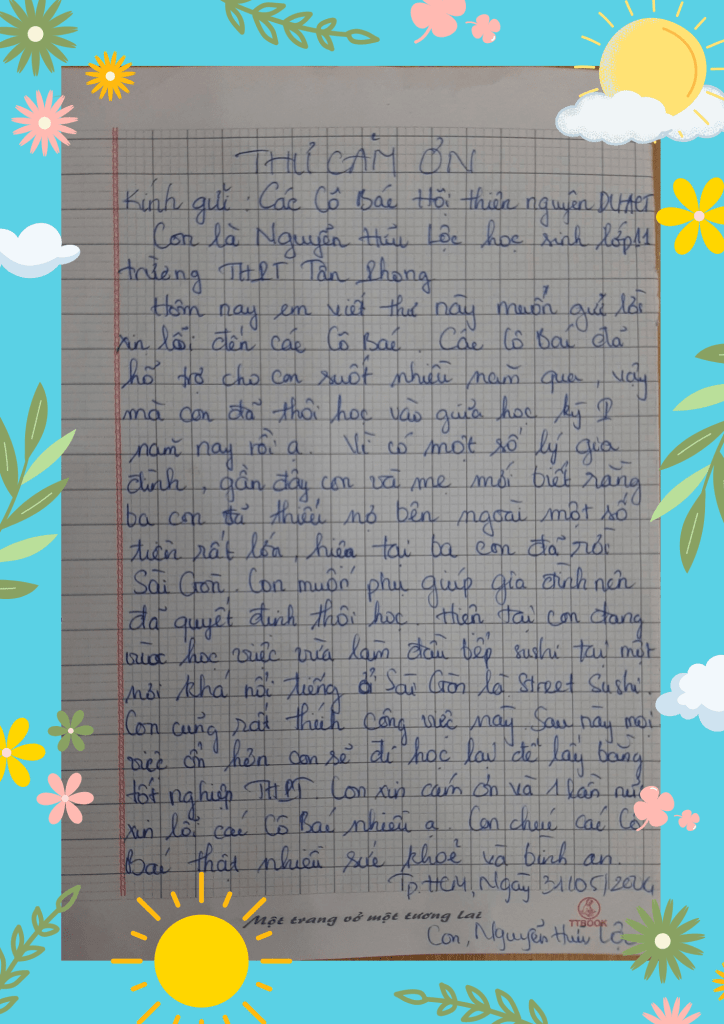 THƯ CẢM ƠN
Kính gửi : Các Cô Bác Hội thiện nguyện
Con là Nguyễn Hữu Lộc học sinh lớp 11
trường THPT Tân Phong
Hôm nay em viết thư này muốn gửi lời
xin lỗi đến các Cô Bác . Các Cô Bác đã
hỗ trợ cho con suốt nhiều năm qua , vậy
mà con đã thôi học vào giữa học kỳ I
năm nay rồi ạ . Vì có một số lý gia
đình , gần đây con và mẹ mới biết rằng
ba con đã thiếu nợ bên ngoài một số
tiền rất lớn , hiện tại ba con đã rời
Sài Gòn . Con muốn phụ giúp gia đình nên
đã quyết định thôi học . Hiện tại con đang
vừa học việc vừa làm đầu bếp sushi tại một
nơi khá nổi tiếng ở Sài Gòn là Street Sushi .
Con cũng rất thích công việc này . Sau này mọi
việc ổn hơn con sẽ đi học lại để lấy bằng
tốt nghiệp THPT . Con xin cảm ơn và 1 lần nữa
xin lỗi các Cô Bác nhiều ạ . Con chúc các Cô
Bác thật nhiều sức khoẻ và bình an .
Tp.HCM, Ngày 31/05/2024
Một trang vở một tương lai
TTBOOK
Con, Nguyễn Hữu Lộc